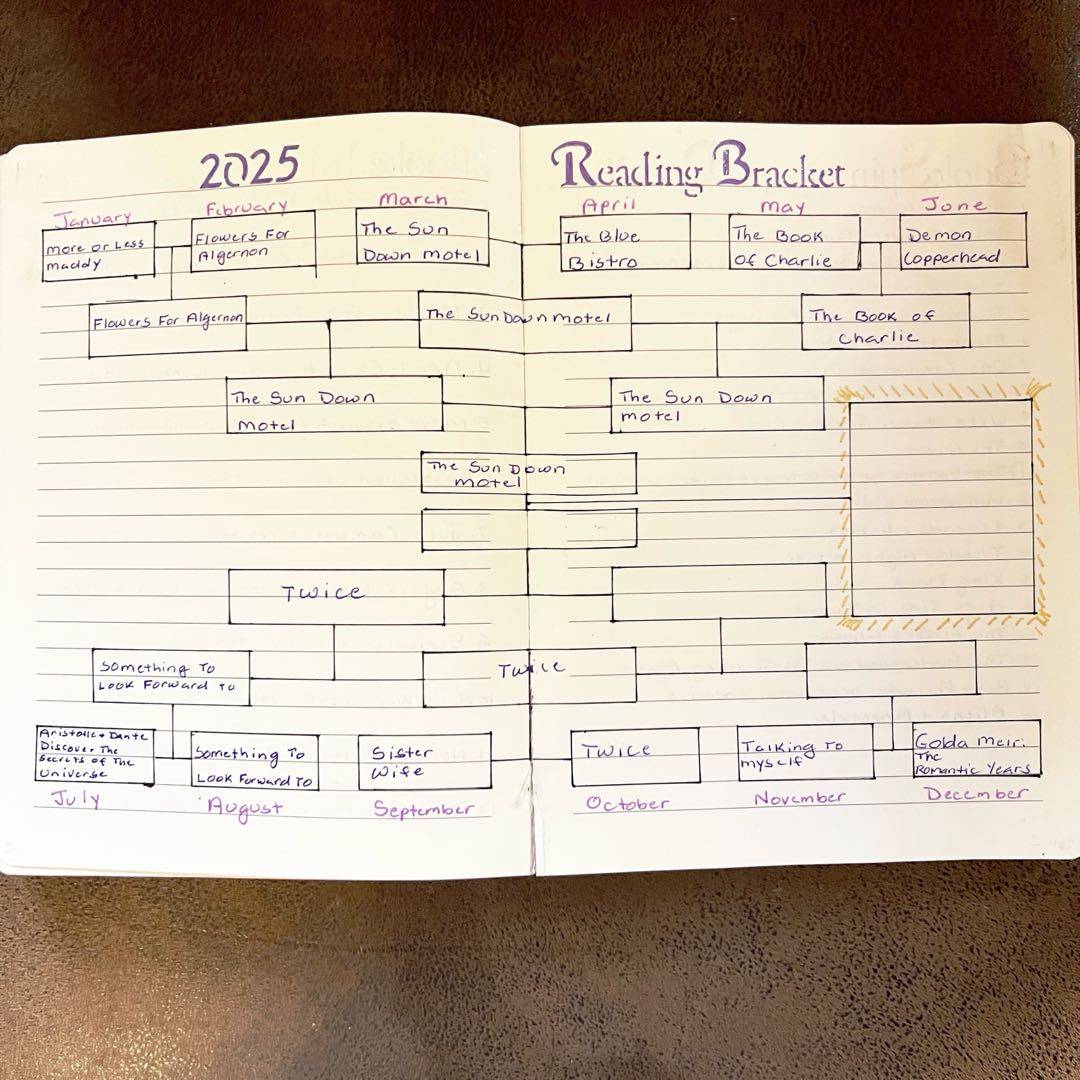 2025 Reading Bracket
January February March April May June
More or Less
Maddy
Flowers For
Algernon
The Sun
Down Motel
The Blue
Bistro
The Book
Of Charlie
Demon
Copperhead
Flowers For Algernon
The Sun Down Motel
The Book of
Charlie
The Sun Down
Motel
The Sun Down
Motel
The Sun Down
Motel
Twice
Something To
Look Forward To
Twice
Aristotle + Dante
Discover The
Secrets of The
Universe
Something To
Look Forward To
Sister
Wife
Twice
Talking To
Myself
Golda Meir:
The
Romantic Years
July August September October November December